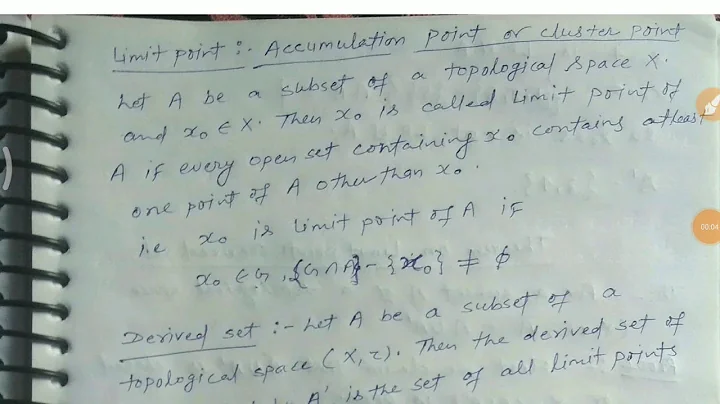 Limit point :- Accumulation point or cluster point
Let A be a subset of a topological space X.
and x₀ ∈ X. Then x₀ is called limit point of
A if every open set containing x₀ contains atleast
one point of A other than x₀.
i.e x₀ is limit point of A if
x₀ ∈ G, {G ∩ A} - {x₀} ≠ ϕ
Derived set :- Let A be a subset of a
topological space (X, τ). Then the derived set of
A' is the set of all limit points
00:04